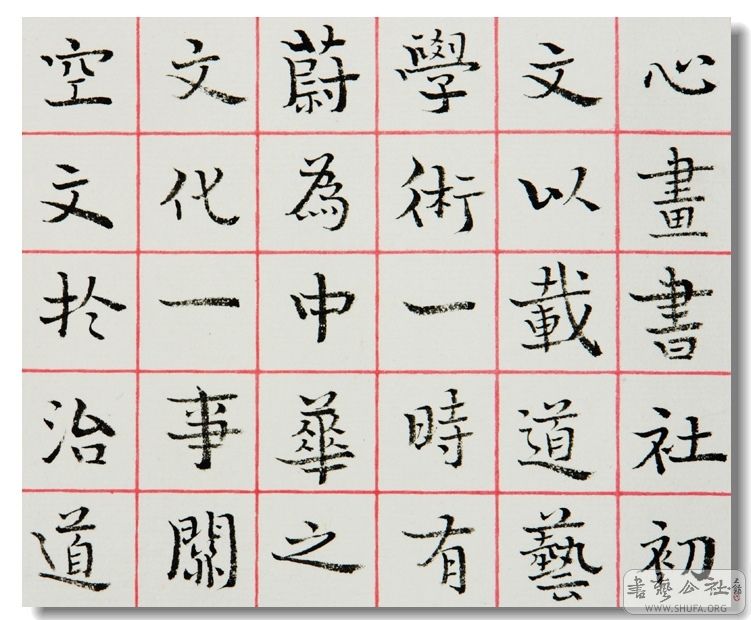 心畫書社初
文以載道藝
學術一時有
蔚為中華之
文化一事關
空文於治道
書藝公社
WWW.SHUFA.ORG